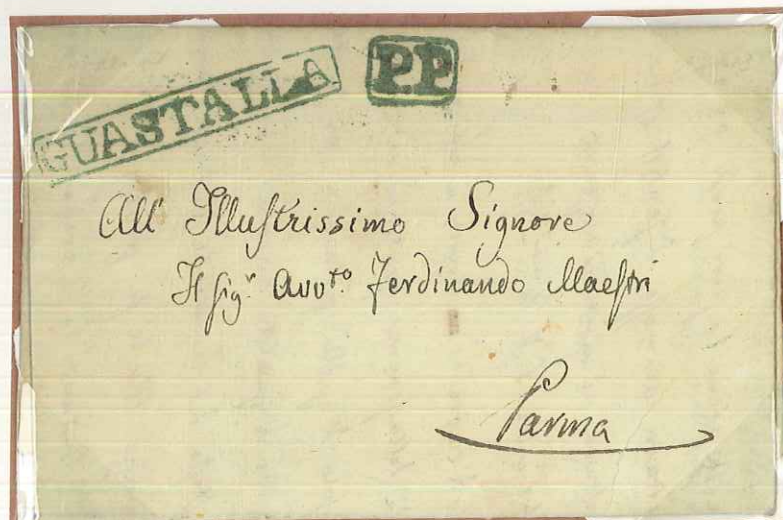 GUASTALLA
P.P.
All' Illustrissimo Signore
Il Sig.r Avv.to Ferdinando Maestri
Parma